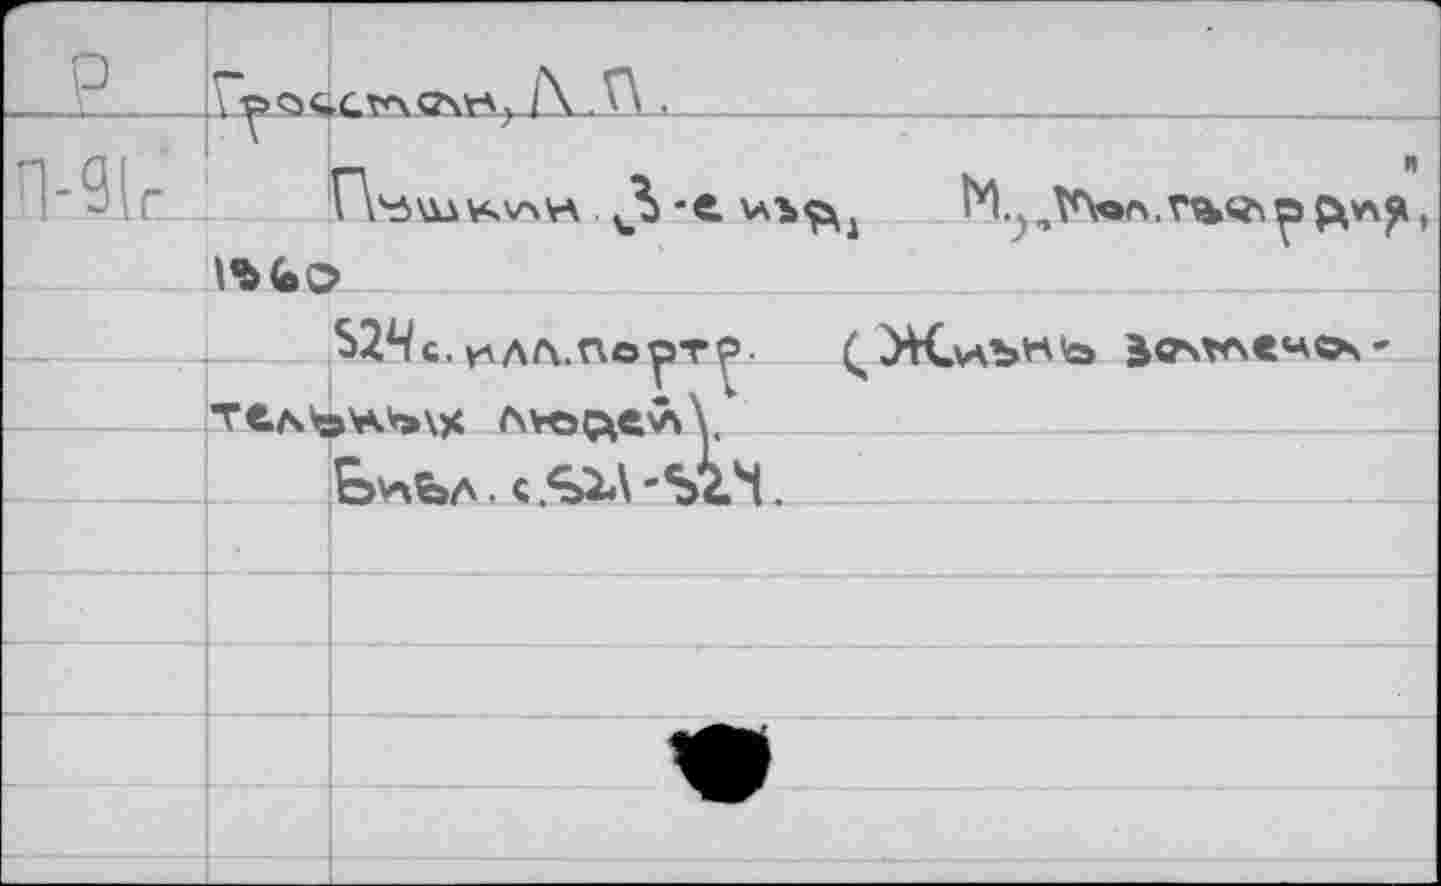 Р
Гроссман, Л.П.
П-91г
Пушкин. 3-е изд. М., "Мол.гвардия",
1960
524с. илл. портр. (Жизнь замеча-
тельных людей).
Библ. с.521-524.